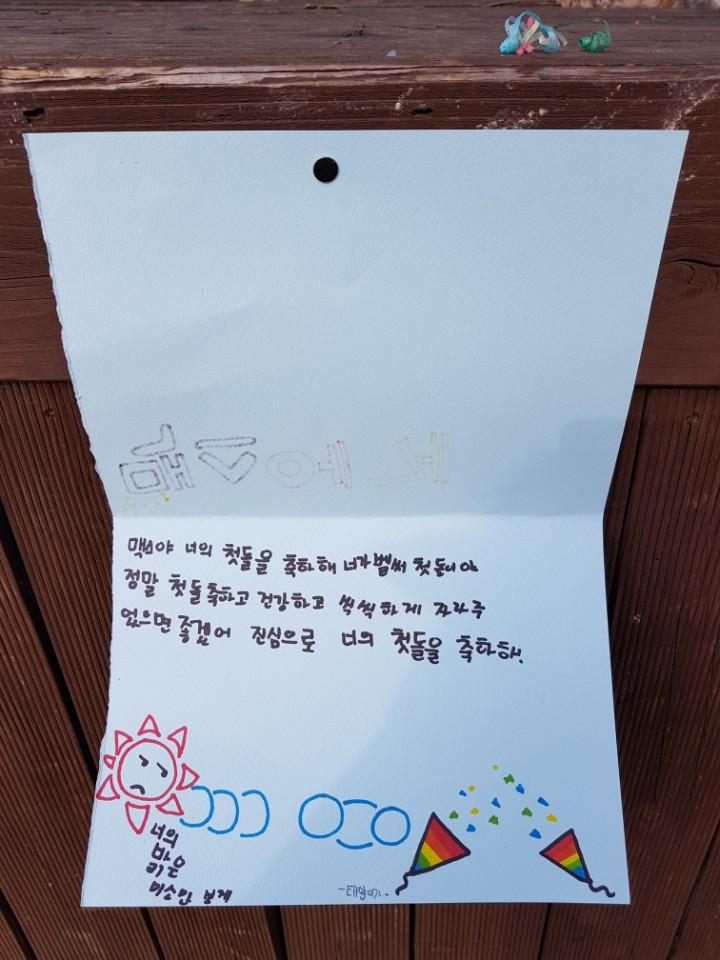 맥스야 너의 첫돌을 축하해 너가 벌써 첫돌이야
정말 첫돌축하고 건강하고 씩씩하게 자라주
었으면 좋겠어 진심으로 너의 첫돌을 축하해.
너의
밝은
미소만 보게
-태양이가-